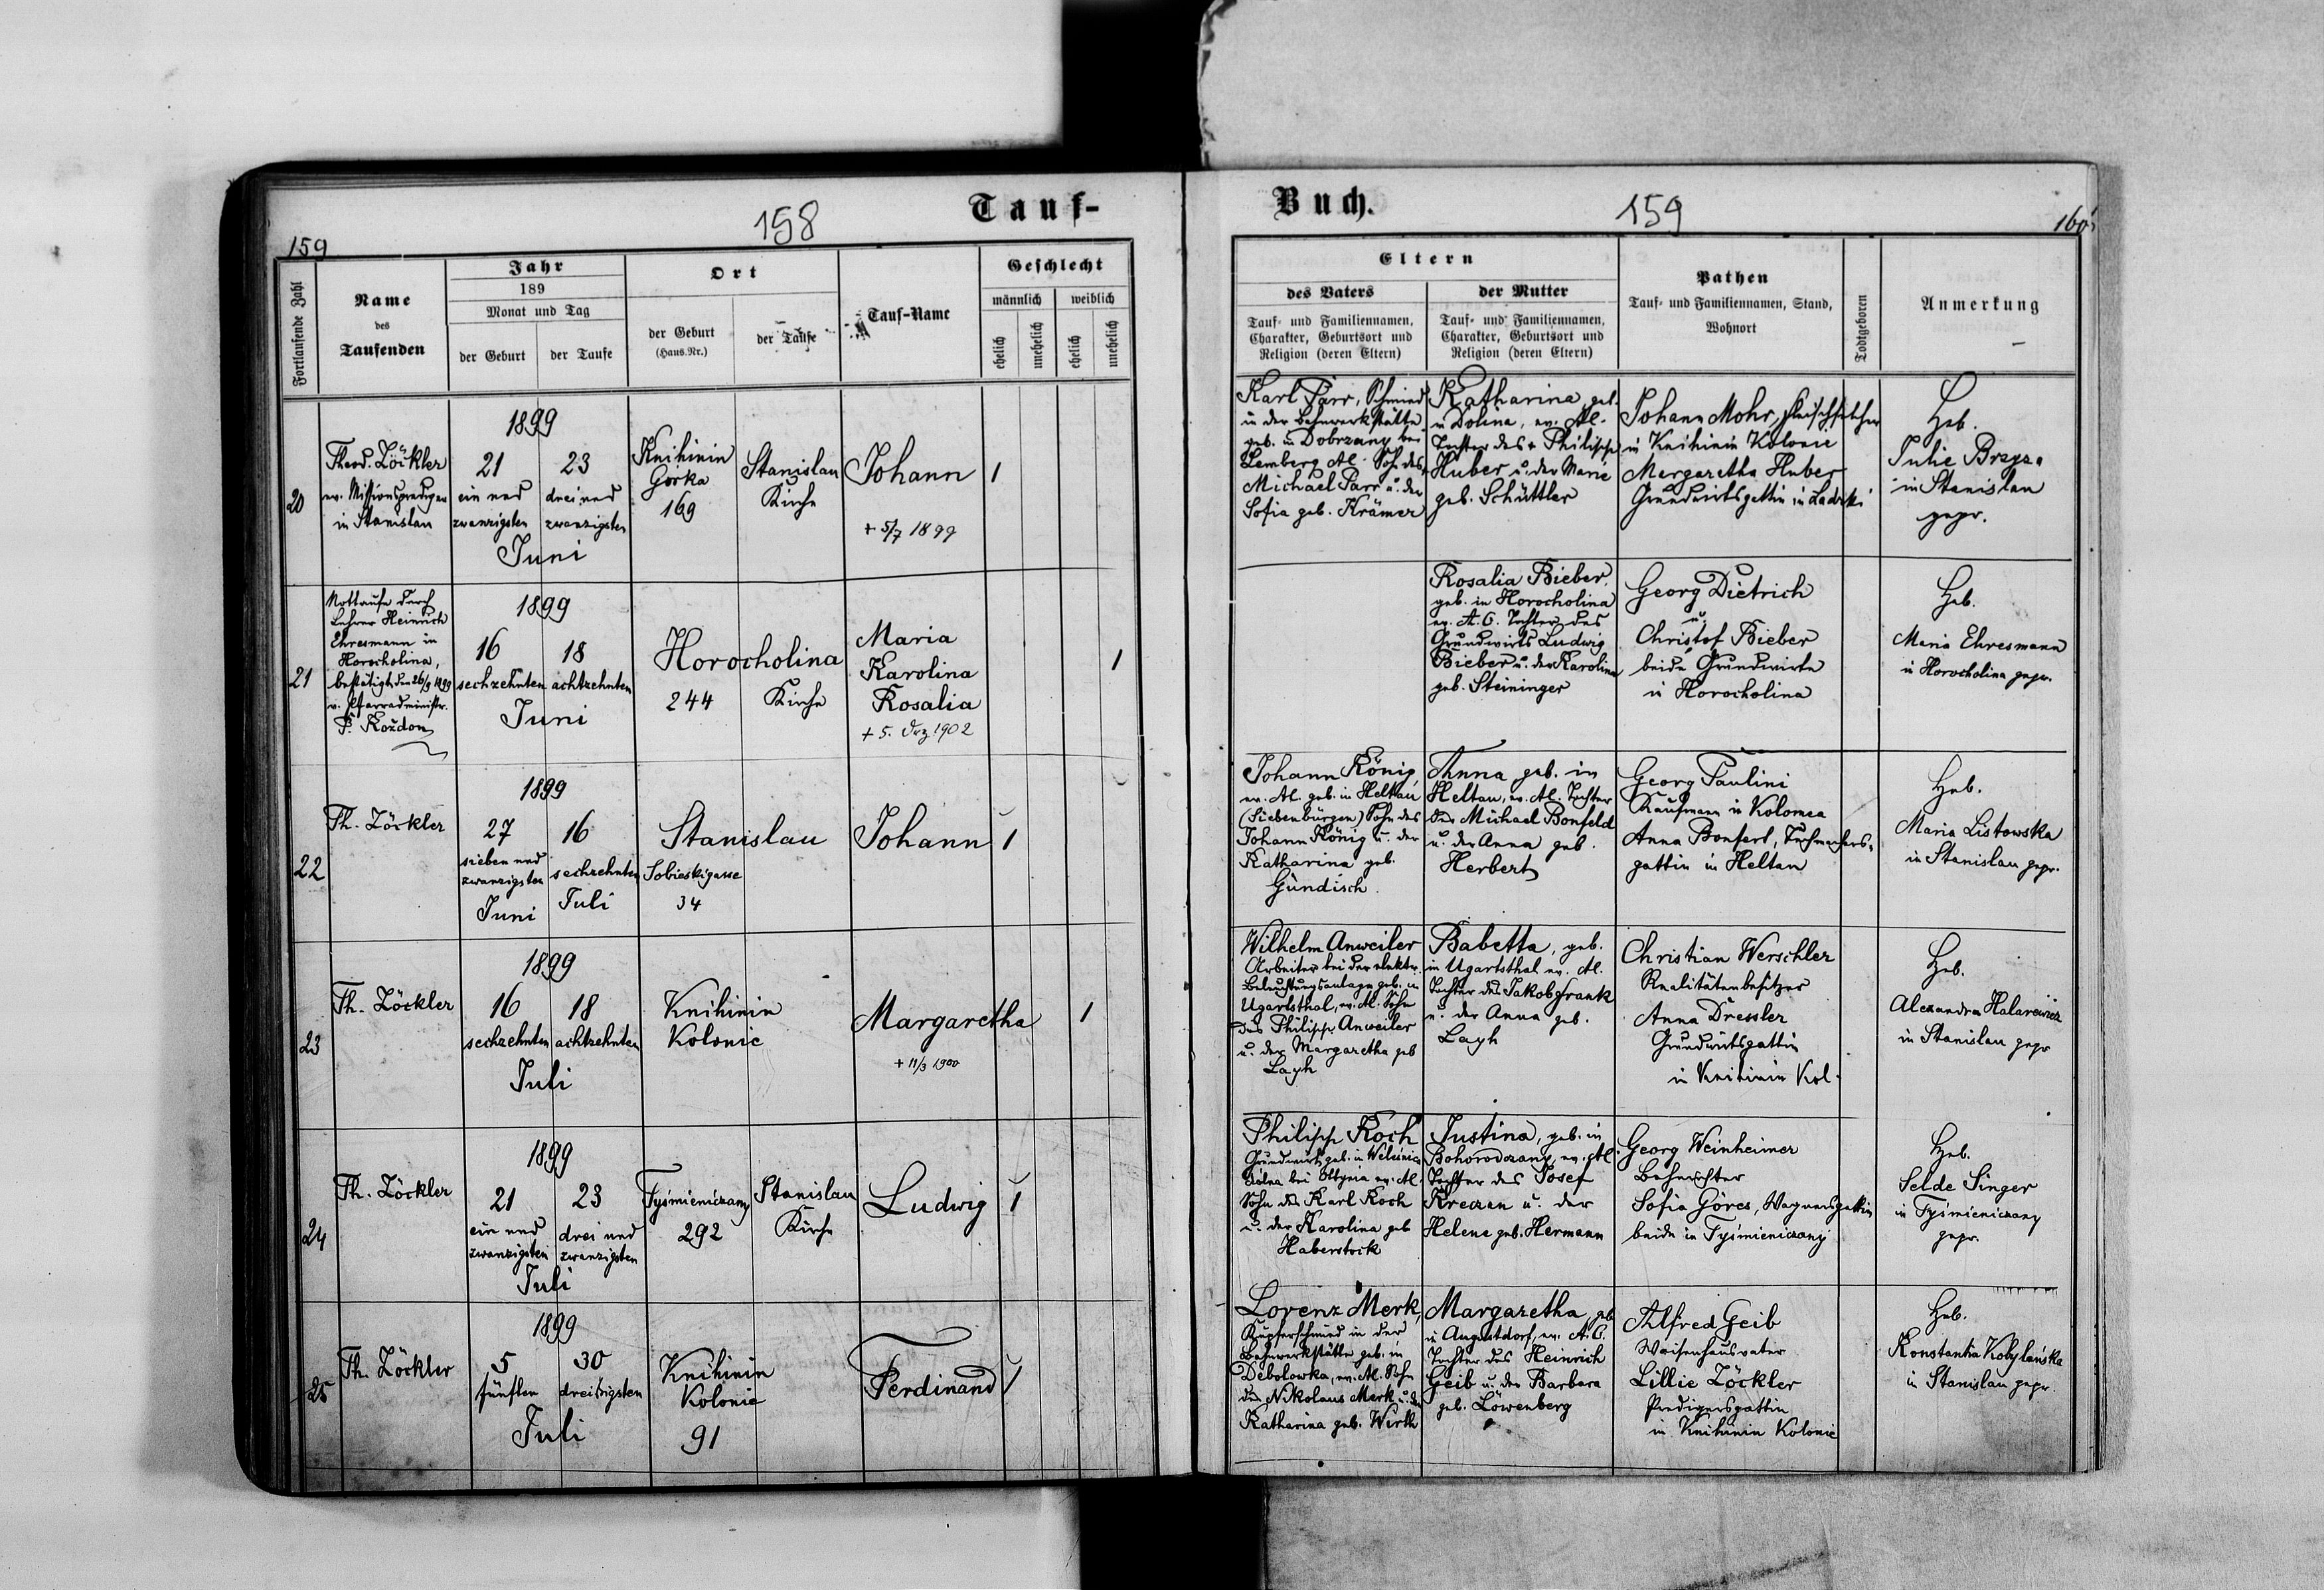 Tauf-
158
159
Fortlaufende Zahl
Name
des
Taufenden
Jahr
189
Monat und Tag
der Geburt
der Taufe
Ort
der Geburt
(Haus-Nr.)
der Taufe
Tauf-Name
Geschlecht
männlich
weiblich
ehelich
unehelich
ehelich
unehelich
20
Theod. Zöckler
ev. Missionsprediger
in Stanislau
1899
21
ein und
zwanzigsten
23
drei und
zwanzigsten
Juni
Knihinin
Górka
169
Stanislau
Kirche
Johann
+ 5/7 1899
1
21
Nottaufe durch
Lehrer Heinrich
Ehresmann in
Horocholina,
bestätigt den 26/9 1899
v. Pfarradministr.
P. Koždon
1899
16
sechzehnten
18
achtzehnten
Juni
Horocholina
244
Kirche
Maria
Karolina
Rosalia
+ 5. Dez 1902
1
22
Th. Zöckler
1899
27
sieben und
zwanzigsten
Juni
16
sechzehnten
Juli
Stanislau
Sobieskigasse
34
Johann
1
23
Th. Zöckler
1899
16
sechzehnten
18
achtzehnten
Juli
Knihinin
Kolonie
Margaretha
+ 11/3 1900
1
24
Th. Zöckler
1899
21
ein und
zwanzigsten
23
drei und
zwanzigsten
Juli
Tyśmieniczany
292
Stanislau
Kirche
Ludwig
1
25
Th. Zöckler
1899
5
fünften
30
dreißigsten
Juli
Knihinin
Kolonie
91
Ferdinand
1
Buch.
159
160
Eltern
des Vaters
Tauf- und Familiennamen,
Charakter, Geburtsort und
Religion (deren Eltern)
der Mutter
Tauf- und Familiennamen,
Charakter, Geburtsort und
Religion (deren Eltern)
Pathen
Tauf- und Familiennamen, Stand,
Wohnort
Todtgeboren
Anmerkung
Karl Parr, Schmied
in der Bahnwerkstätte
geb. in Dobrzany bei
Lemberg AC. Sohn des
Michael Parr u. der
Sofia geb. Krämer
Katharina, geb.
in Dolina, ev. AC.
Tochter des + Philipp
Huber u. der Marie
geb. Schüttler
Johann Mohr,
in Knihinin Kolonie
Margaretha Huber
Grundwirtsgattin in
Heb.
Julie
in Stanislau
gepr.
Rosalia Bieber,
geb. in Horocholina
ev. A.C. Tochter des
Grundwirts Ludwig
Bieber u. der Karolina
geb. Steininger
Georg Dietrich
u.
Christof Bieber
beide Grundwirte
in Horocholina
Heb.
Maria Ehresmann
in Horocholina gepr.
Johann König,
ev. AC. geb. in Heltau
(Siebenbürgen) Sohn des
Johann König u. der
Katharina geb.
Gündisch.
Anna geb. in
Heltau, ev. AC. Tochter
des Michael Bonfeld
u. der Anna geb.
Herbert
Georg Paulini
Kaufmann in Kolomea
Anna Bonfert, Tuchmachers-
gattin in Heltau
Heb.
Maria Listowska
in Stanislau gepr.
Wilhelm Anweiler
Arbeiter bei der elektr.
Beleuchtungsanlage geb. in
Ugartsthal, ev. AC. Sohn
des Philipp Anweiler
u. der Margaretha geb
Layh
Babetta, geb.
in Ugartsthal ev. AC.
Tochter des Jakob Frank
u. der Anna geb.
Layh
Christian Werschler
Realitätenbesitzer
Anna Dressler
Grundwirtsgattin
in Knihinin Kol.
Heb.
Alexandra Halarewicz
in Stanislau gepr
Philipp Koch
Grundwirt, geb. in
bei Ottynia ev. AC.
Sohn des Karl Koch
u. der Karolina geb
Haberstock
Justina, geb. in
Bohorodczany, ev. AC.
Tochter des Josef
Kreczan u. der
Helene geb. Hermann
Georg Weinheimer
Sofia Göres, Wagnersgattin
beide in Tyśmieniczany
Heb.
Selde Singer
in Tyśmieniczany
gepr.
Lorenz Merk,
Kupferschmied in der
Bahnwerkstätte geb. in
Debolowka, ev. AC. Sohn
des Nikolaus Merk u. der
Katharina geb. Wirth
Margaretha geb
in Augustdorf, ev. A.C.
Tochter des Heinrich
Geib u. der Barbara
geb. Löwenberg
Alfred Geib
Waisenhausvater
Lillie Zöckler
Predigersgattin
in Knihinin Kolonie
Heb.
Konstantia Kobylańska
in Stanislau gepr.